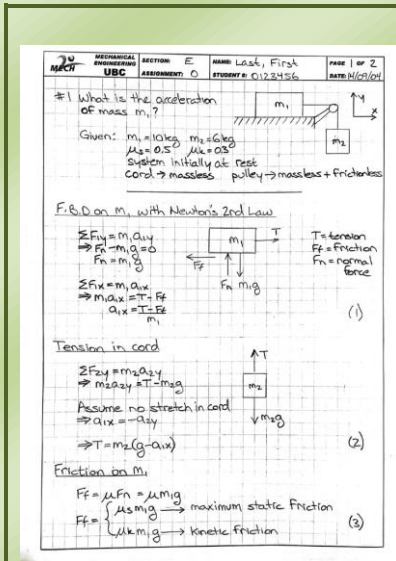 MECH 2
MECHANICAL ENGINEERING UBC
SECTION: E
ASSIGNMENT: 0
NAME: Last, First
STUDENT #: 0123456
PAGE 1 OF 2
DATE: 14/09/04
#1 What is the acceleration
of mass m₁?
m₁
y
x
m₂
Given: m₁=10kg m₂=6kg
μs=0.5 μk=0.3
system initially at rest
cord→massless pulley→massless+frictionless
F.B.D on m₁ with Newton's 2nd Law
ΣF₁y=m₁a₁y
⇒Fn-m₁g=0
Fn=m₁g
m₁
T
Ff
Fn m₁g
T=tension
Ff=friction
Fn=normal
force
ΣF₁x=m₁a₁x
⇒m₁a₁x=T-Ff
a₁x=T-Ff
m₁
(1)
Tension in cord
ΣF₂y=m₂a₂y
⇒m₂a₂y=T-m₂g
T
m₂
m₂g
Assume no stretch in cord
⇒a₁x=-a₂y
⇒T=m₂(g-a₁x)
(2)
Friction on m₁
Ff=μFn=μm₁g
Ff={μsm₁g→maximum static friction
μkm₁g→kinetic friction
(3)